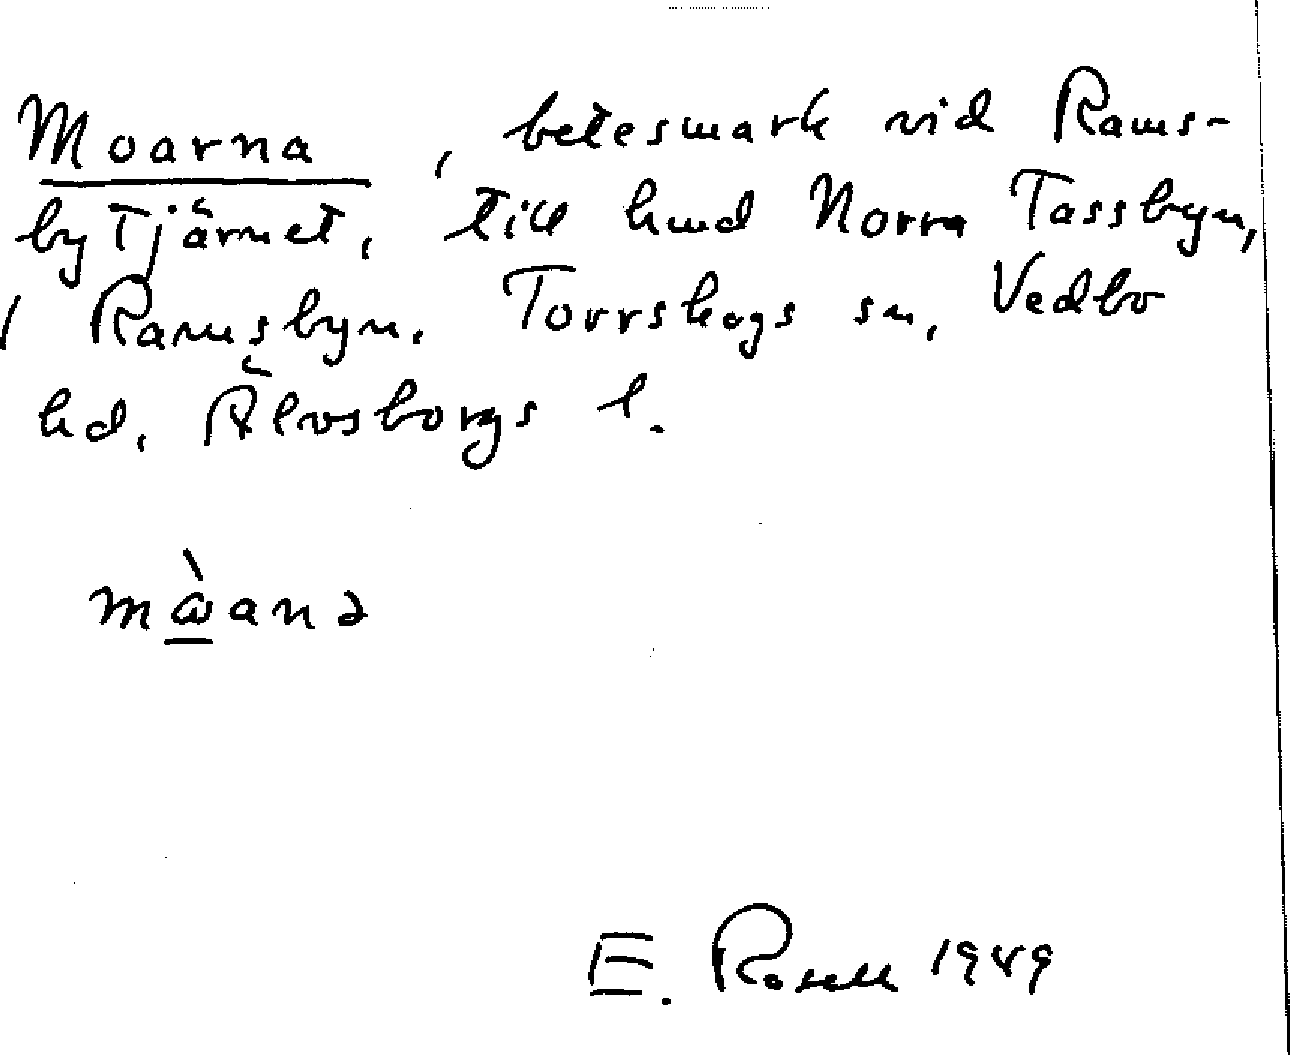 Moarna, betesmark vid Rams-
bytjärnet, till hmd Norra Tassbyn,
i Ramsbyn. Torrskogs sn, Vedbo
hd, Älvsborgs l.
mɷ̀anə
E. Rosell 1949